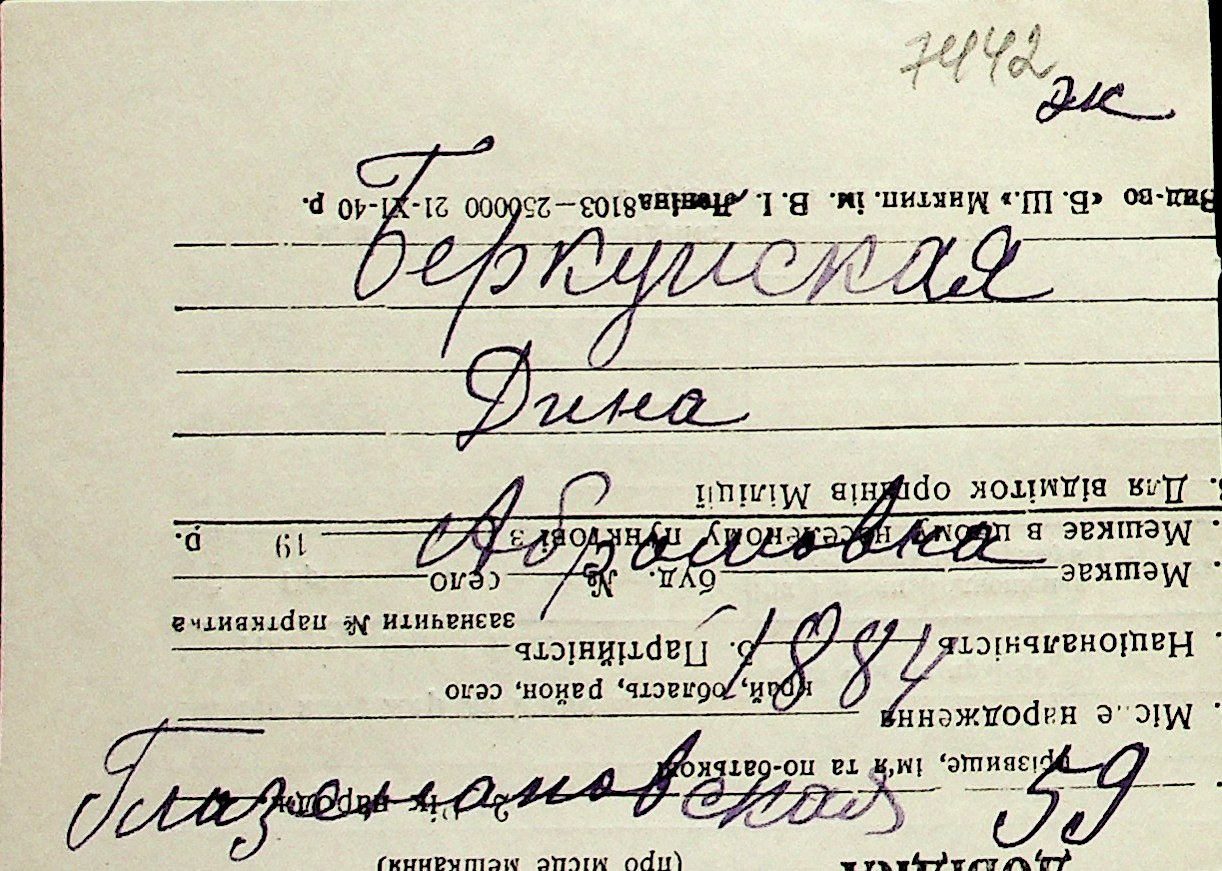 7442
эк
Беркуйская
Дина
Абрамовна
1884
Глаземановская 59
ДОВІДКА
(про місце мешкання)
прізвище, ім'я та по-батькові
2. Рік народж.
Місце народження
край, область, район, село
Національність 5. Партійність
зазначити № партквитка
Мешкає буд. № село
Мешкає в цьому населеному пунктові з 19 р.
Для відміток органів Міліції
Вид-во «Б. Ш.» Миктип. ім. В. І. Леніна 8103—250000 21-XI-40 р.